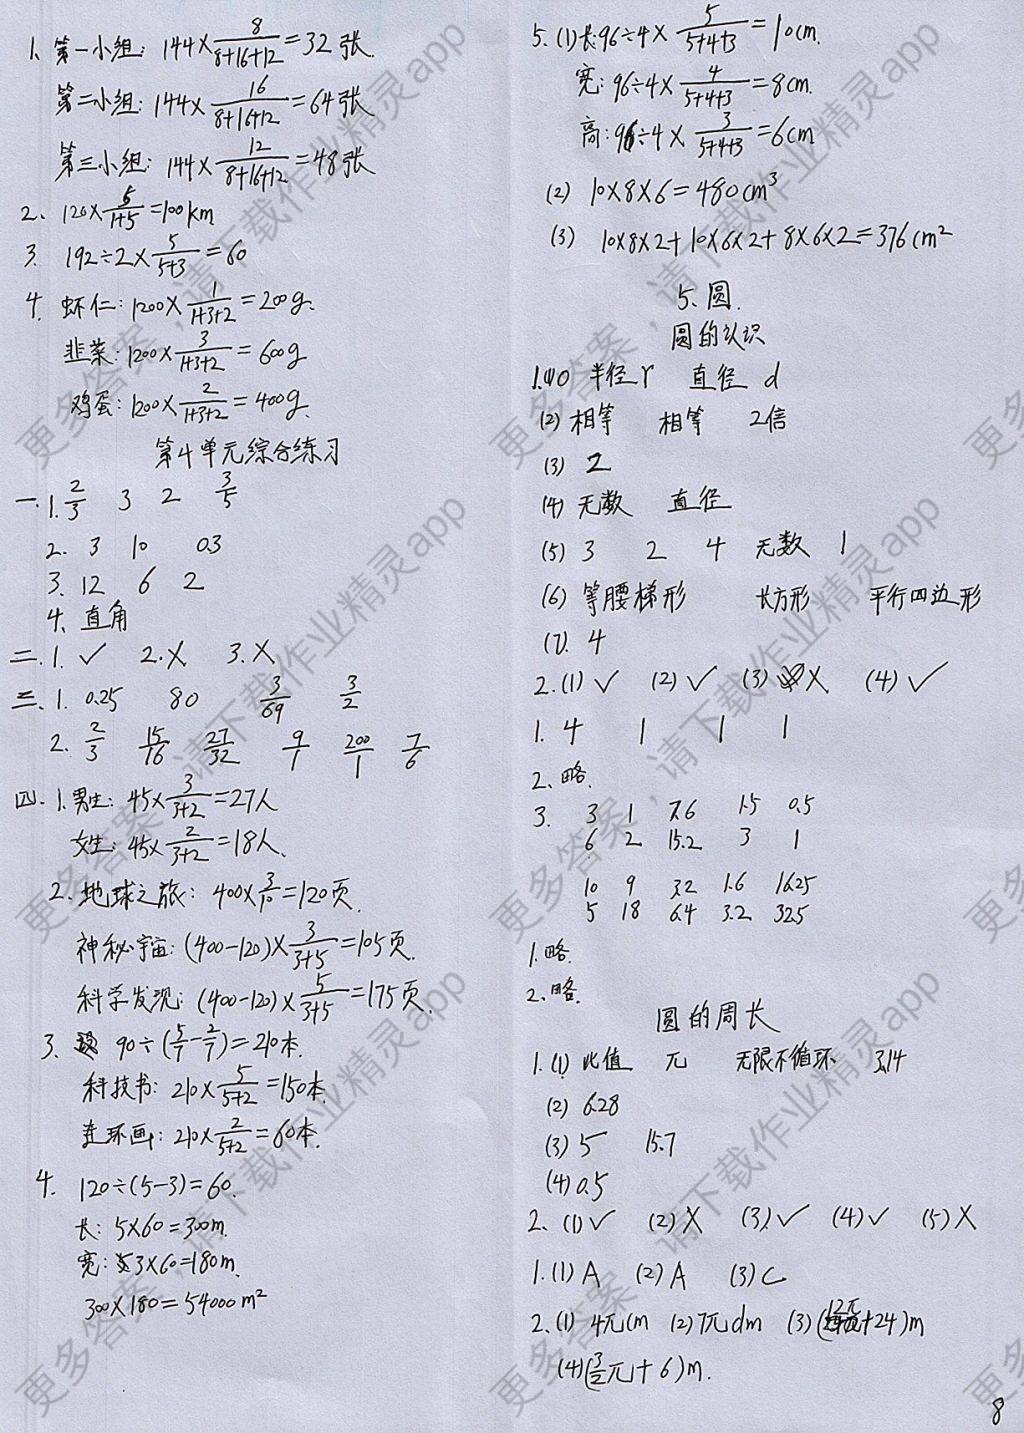 1. 第一小组: 144×8/(8+16+12)=32张
第二小组: 144×16/(8+16+12)=64张
第三小组: 144×12/(8+16+12)=48张
2. 120×5/(1+5)=100km
3. 192÷2×5/(5+3)=60
4. 虾仁: 1200×1/(1+3+2)=200g.
韭菜: 1200×3/(1+3+2)=600g
鸡蛋: 1200×2/(1+3+2)=400g.
第4单元综合练习
一.1. 2/3 3 2 3/5
2. 3 10 0.3
3. 12 6 2
4. 直角
二.1. ✓ 2.× 3.×
三.1. 0.25 80 3/69 3/2
2. 2/3 15/16 27/32 9/1 200/1 7/6
四.1.男生: 45×3/(3+2)=27人
女生: 45×2/(3+2)=18人.
2. 地球之旅: 400×3/10=120页.
神秘宇宙: (400-120)×3/(3+5)=105页.
科学发现: (400-120)×5/(3+5)=175页.
3. 90÷(5/7-2/7)=210本.
科技书: 210×5/(5+2)=150本.
连环画: 210×2/(5+2)=60本.
4. 120÷(5-3)=60.
长: 5×60=300m.
宽: 3×60=180m.
300×180=54000m²
5. (1)长:96÷4×5/(5+4+3)=10cm.
宽: 96÷4×4/(5+4+3)=8cm.
高: 96÷4×3/(5+4+3)=6cm
(2) 10×8×6=480cm³
(3) 10×8×2+10×6×2+8×6×2=376cm²
5. 圆.
圆的认识
1.(1)O 半径r 直径d
(2) 相等 相等 2倍
(3) 2
(4) 无数 直径
(5) 3 2 4 无数 1
(6) 等腰梯形 长方形 平行四边形
(7). 4
2.(1)✓ (2)✓ (3)× (4)✓
1. 4 1 1 1
2. 略.
3. 3 1 7.6 1.5 0.5
6 2 15.2 3 1
10 9 3.2 1.6 16.25
5 18 6.4 3.2 32.5
1.略.
2.略.
圆的周长
1.(1) 比值 π 无限不循环 3.14
(2) 6.28
(3) 5 15.7
(4) 0.5
2. (1)✓ (2)× (3)✓ (4)✓ (5)×
1.(1) A (2) A (3) C
2.(1) 4πcm (2) 7πdm (3) (12π+24)m
(4)(3/2π+6)m.
8
更多答案，请下载作业精灵app
更多答案，请下载作业精灵app
更多答案，请下载作业精灵app
更多答案，请下载作业精灵app
更多答案，请下载作业精灵app
更多答案，请下载作业精灵app